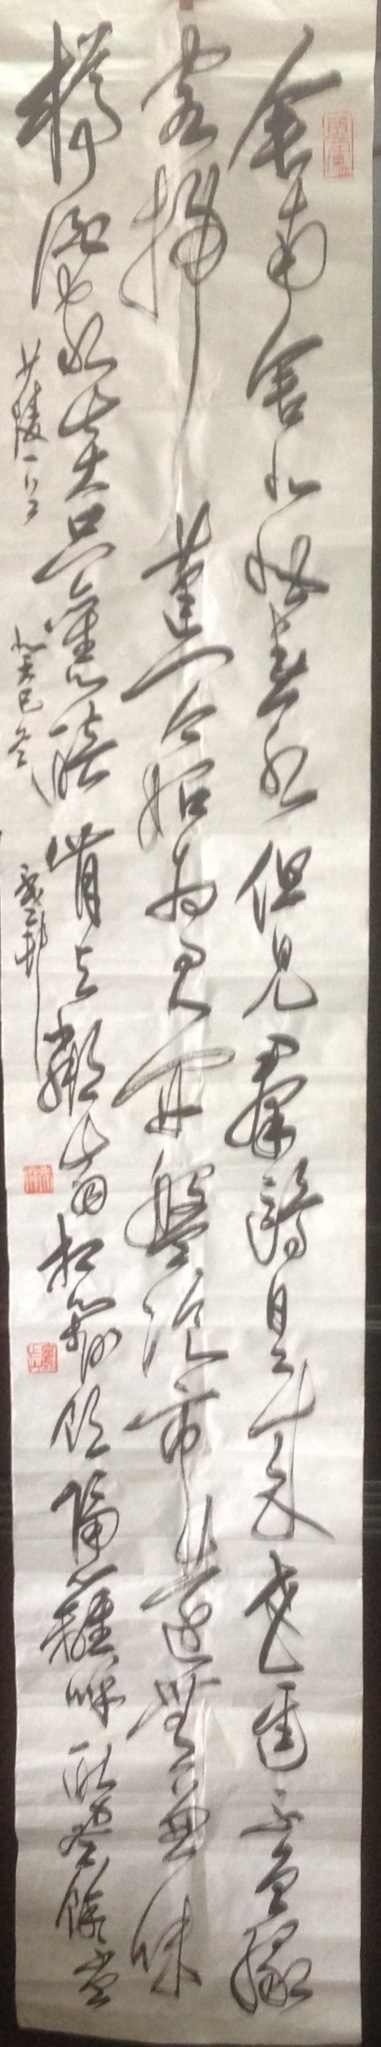 舍南舍北皆春水但見群鷗日日來花徑不曾緣
客掃蓬門今始為君開盤飧市遠無兼味
樽酒家貧只舊醅肯與鄰翁相對飲隔籬呼取盡餘杯
少陵一首 癸巳冬